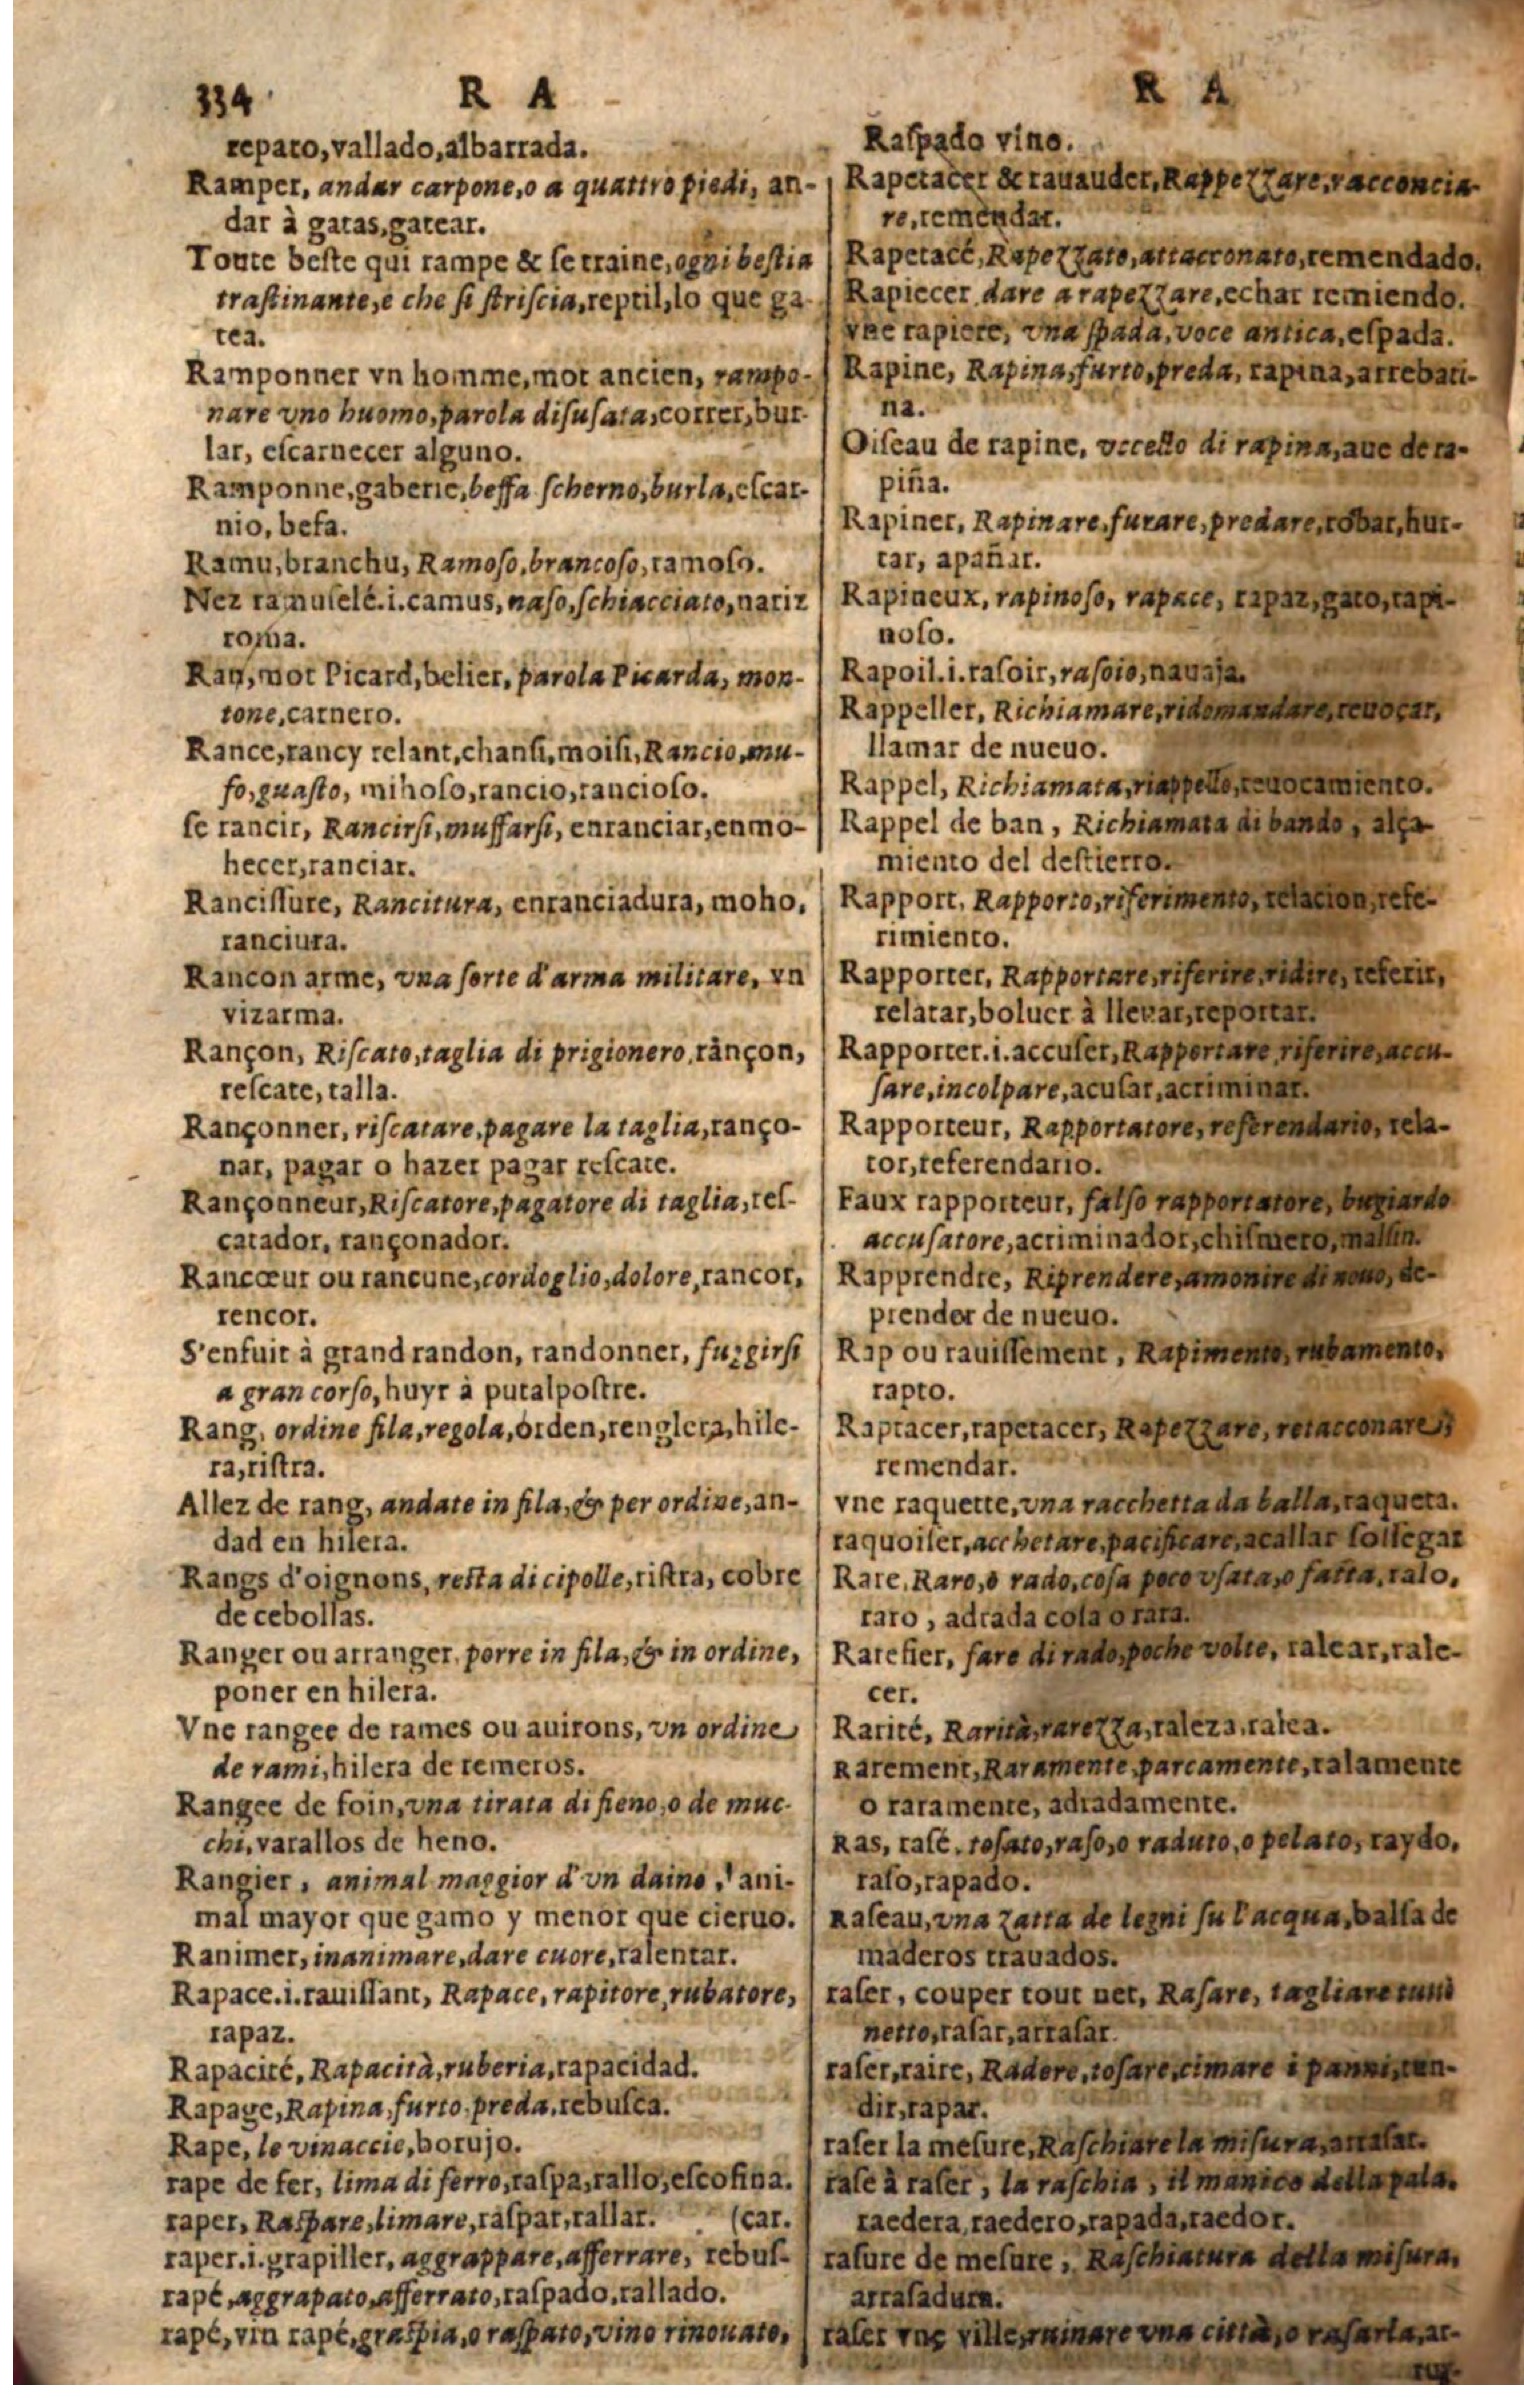 334 R A
reparo,vallado,albarrada.
Ramper, andar carpone,o a quattro piedi, an-
dar à gatas,gatear.
Toute beſte qui rampe & ſe traine,ogni beſtia
traſtinante,e che ſi ſtriſcia,reptil,lo que ga-
tea.
Ramponner vn homme,mot ancien, rampo-
nare vno huomo,parola diſuſata,correr,bur-
lar, eſcarnecer alguno.
Ramponne,gaberie,beffa ſcherno,burla,eſcar-
nio, befa.
Ramu,branchu, Ramoſo,brancoſo,ramoſo.
Nez ramuſelé.i.camus,naſo,ſchiacciato,nariz
roma.
Ran,mot Picard,belier, parola Picarda, mon-
tone,carnero.
Rance,rancy relant,chanſi,moiſi,Rancio,mu-
fo,guaſto, mihoſo,rancio,rancioſo.
ſe rancir, Rancirſi,muffarſi, enranciar,enmo-
hecer,ranciar.
Ranciſſure, Rancitura, enranciadura, moho,
ranciura.
Rancon arme, vna ſorte d'arma militare, vn
vizarma.
Rançon, Riſcato,taglia di prigionero,rançon,
reſcate, talla.
Rançonner, riſcatare,pagare la taglia,ranço-
nar, pagar o hazer pagar reſcate.
Rançonneur,Riſcatore,pagatore di taglia,reſ-
catador, rançonador.
Rancœur ou rancune,cordoglio,dolore,rancor,
rencor.
S'enfuit à grand randon, randonner, fuggirſi
a gran corſo,huyr à putalpoſtre.
Rang, ordine fila,regola,orden,renglera,hile-
ra,riſtra.
Allez de rang, andate in fila,& per ordine,an-
dad en hilera.
Rangs d'oignons, reſta di cipolle,riſtra, cobre
de cebollas.
Ranger ou arranger, porre in fila,& in ordine,
poner en hilera.
Vne rangee de rames ou auirons, vn ordine
de rami,hilera de remeros.
Rangee de foin,vna tirata di fieno,o de muc-
chi,varallos de heno.
Rangier , animal maggior d'vn daino , ani-
mal mayor que gamo y menor que cieruo.
Ranimer,inanimare,dare cuore,ralentar.
Rapace.i.rauiſſant, Rapace, rapitore,rubatore,
rapaz.
Rapacité, Rapacità,ruberia,rapacidad.
Rapage,Rapina,furto,preda,rebuſca.
Rape, le vinaccie,borujo.
rape de fer, lima di ferro,raſpa,rallo,eſcofina.
raper, Raſpare,limare,raſpar,rallar. (car.
raper.i.grapiller, aggrappare,afferrare, rebuſ-
rapé,aggrapato,afferrato,raſpado,rallado.
rapé,vin rapé,graſpia,o raſpato,vino rinouato,
R A
Raſpado vino.
Rapetacer & rauauder,Rappezzare,racconcia-
re,remendar.
Rapetacé,Rapezzato,attacconato,remendado.
Rapiecer dare a rapezzare,echar remiendo.
vne rapiere, vna ſpada,voce antica,eſpada.
Rapine, Rapina,furto,preda, rapina,arrebati-
na.
Oiſeau de rapine, vccello di rapina,aue de ra-
piña.
Rapiner, Rapinare,furare,predare,robar,hur-
tar, apañar.
Rapineux, rapinoſo, rapace, rapaz,gato,rapi-
noſo.
Rapoil.i.raſoir,raſoio,nauaja.
Rappeller, Richiamare,ridomandare,reuocar,
llamar de nueuo.
Rappel, Richiamata,riappello,reuocamiento.
Rappel de ban , Richiamata di bando , alça-
miento del deſtierro.
Rapport, Rapporto,riferimento, relacion,refe-
rimiento.
Rapporter, Rapportare,riferire,ridire, referir,
relatar,boluer à lleuar,reportar.
Rapporter.i.accuſer,Rapportare,riferire,accu-
ſare,incolpare,acuſar,acriminar.
Rapporteur, Rapportatore,referendario, rela-
tor,referendario.
Faux rapporteur, falſo rapportatore, bugiardo
accuſatore,acriminador,chiſmero,malſin.
Rapprendre, Riprendere,amonire di nouo, de-
prender de nueuo.
Rap ou rauiſſement , Rapimento,rubamento,
rapto.
Raptacer,rapetacer, Rapezzare, retacconare,
remendar.
vne raquette,vna racchetta da balla,raqueta.
raquoiſer,acchetare,pacificare,acallar ſoſſegar
Rare,Raro,o rado,coſa poco vſata,o fatta,ralo,
raro , adrada coſa o rara.
Rarefier, fare di rado,poche volte, ralear,rale-
cer.
Rarité, Rarità,rarezza,raleza,ralea.
Rarement,Raramente,parcamente,ralamente
o raramente, adradamente.
Ras, raſé, toſato,raſo,o raduto,o pelato, raydo,
raſo,rapado.
Raſeau,vna zatta de legni ſu l'acqua,balſa de
maderos trauados.
raſer , couper tout net, Raſare, tagliare tutti
netto,raſar,arraſar.
raſer,raire, Radere,toſare,cimare i panni,tun-
dir,rapar.
raſer la meſure,Raſchiare la miſura,arraſar.
raſe à raſer , la raſchia , il manico della pala.
raedera,raedero,rapada,raedor.
raſure de meſure , Raſchiatura della miſura,
arraſadura.
raſer vne ville,ruinare vna città,o raſarla,ar-